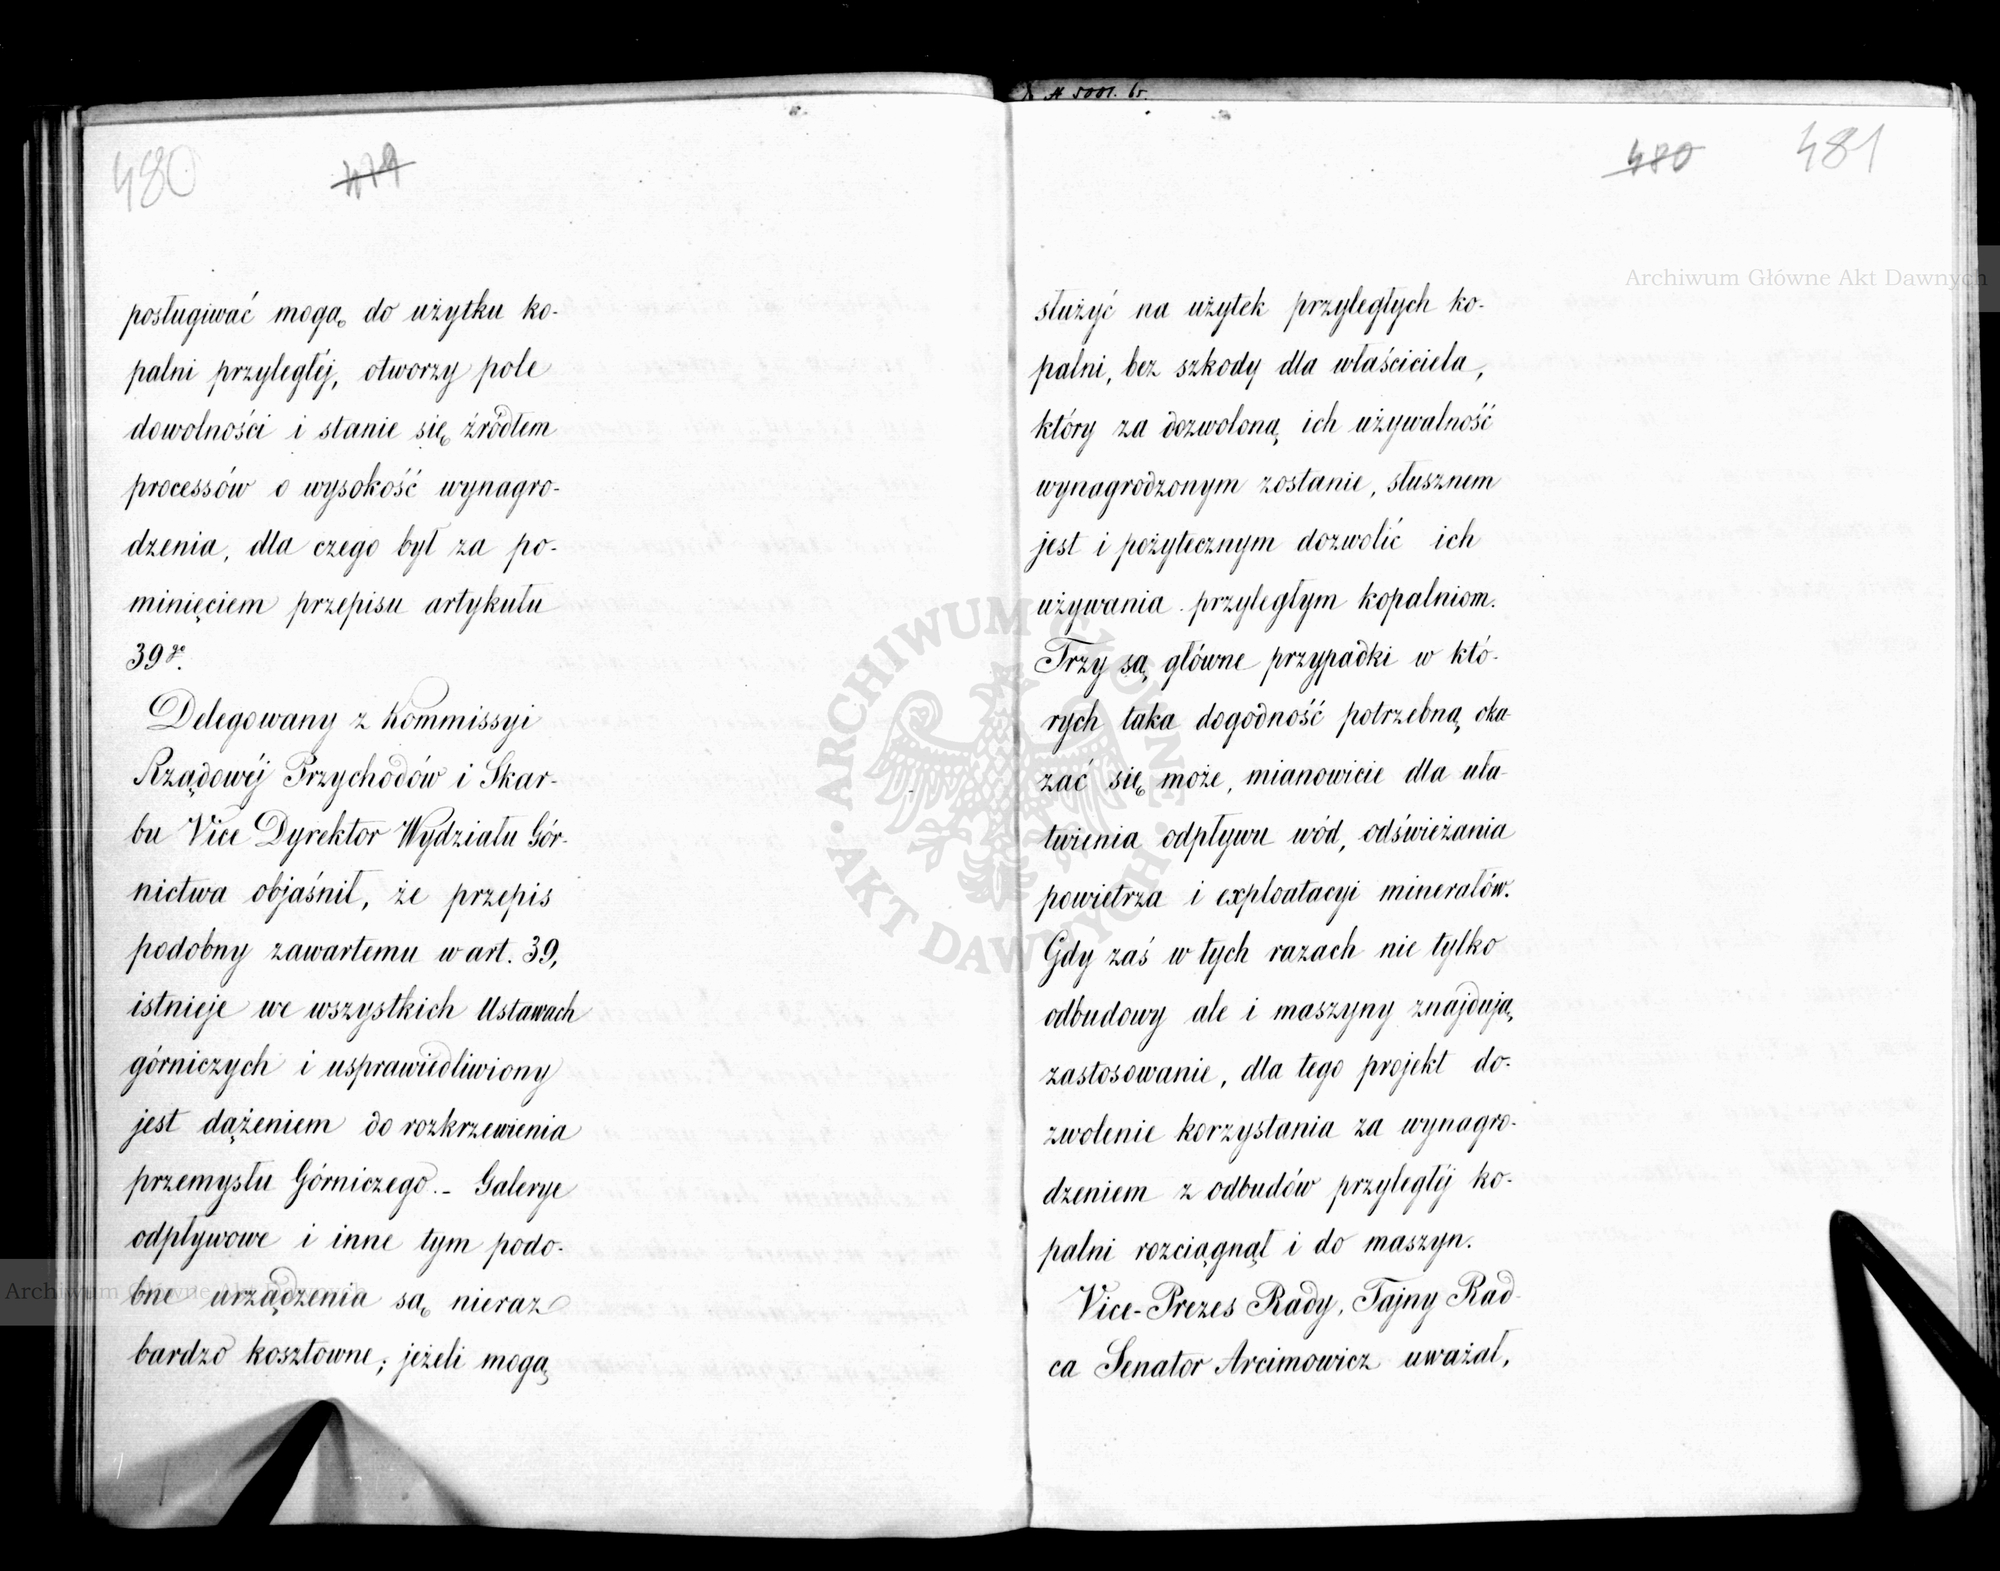 480 479
posługiwać mogą do użytku ko-
palni przyległéj, otworzy pole
dowolności i stanie się źródłem
processów o wysokość wynagro-
dzenia, dla czego był za po-
minięciem przepisu artykułu
39go.
Delegowany z Kommissyi
Rządowéj Przychodów i Skar-
bu Vice Dyrektor Wydziału Gór-
nictwa objaśnił, że przepis
podobny zawartemu w art. 39,
istnieje we wszystkich Ustawach
górniczych i usprawiedliwiony
jest dążeniem do rozkrzewienia
przemysłu Górniczego. - Galerye
odpływowe i inne tym podo-
bne urządzenia są nieraz
bardzo kosztowne; jeżeli mogą
480 481
służyć na użytek przyległych ko-
palni, bez szkody dla właściciela,
który za dozwoloną ich używalność
wynagrodzonym zostanie, słusznem
jest i pożytecznym dozwolić ich
używania przyległym kopalniom.
Trzy są główne przypadki w któ-
rych taka dogodność potrzebną oka-
zać się może, mianowicie dla uła-
twienia odpływu wód, odświeżania
powietrza i exploatacyi minerałów.
Gdy zaś w tych razach nie tylko
odbudowy ale i maszyny znajdują
zastosowanie, dla tego projekt do-
zwolenie korzystania za wynagro-
dzeniem z odbudów przyległéj ko-
palni rozciągnął i do maszyn.
Vice-Prezes Rady, Tajny Rad-
ca Senator Arcimowicz uważał,
Archiwum Główne Akt Dawnych
Archiwum Główne Akt Dawnych
ARCHIWUM GŁÓWNE AKT DAWNYCH